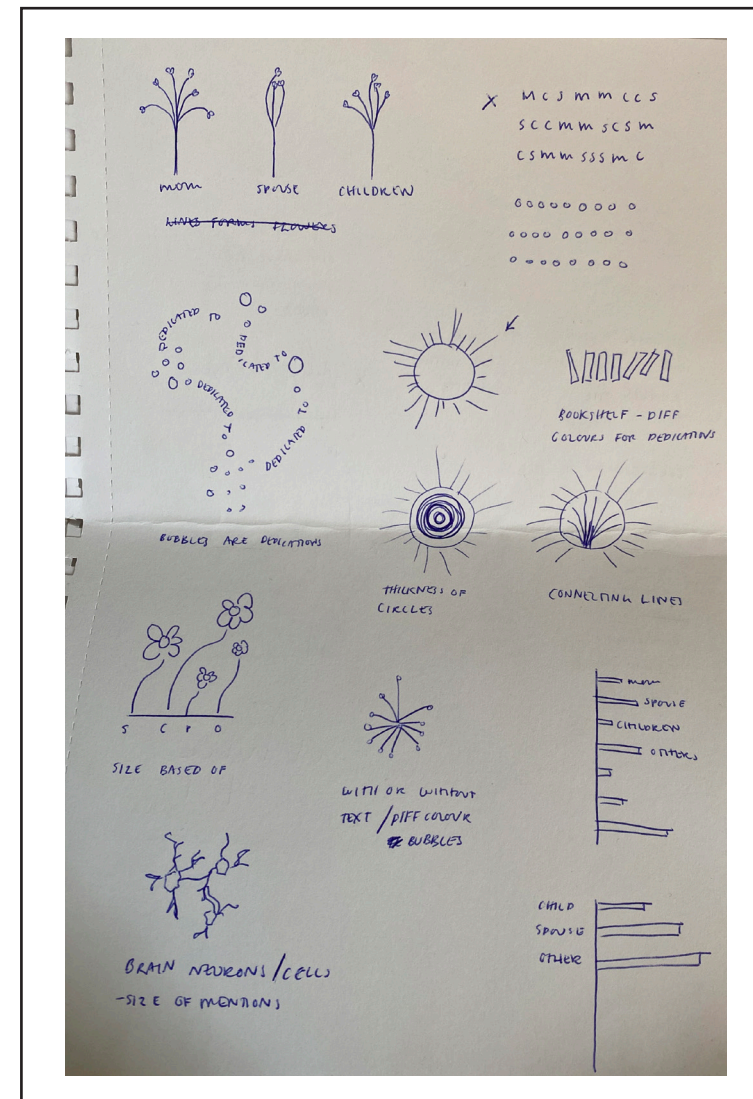 MOM SPOUSE CHILDREN
LINES FORMS FLOWERS
X M C S M M C C S
S C C M M S C S M
C S M M S S S M C
DEDICATED TO
DEDICATED TO
DEDICATED TO
DEDICATED TO
BUBBLES ARE DEDICATIONS
BOOKSHELF - DIFF
COLOURS FOR DEDICATIONS
THICKNESS OF
CIRCLES
CONNECTING LINES
S C P O
SIZE BASED OF
WITH OR WITHOUT
TEXT / DIFF COLOUR
BUBBLES
MOM
SPOUSE
CHILDREN
OTHERS
BRAIN NEURONS/CELLS
-SIZE OF MENTIONS
CHILD
SPOUSE
OTHER